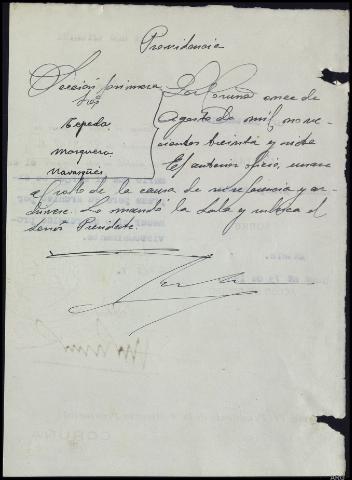 Providencia
Sección primera
Sres
Cepeda
Marquera
Navajuis
La Coruña once de
Agosto de mil nove
cientos treinta y siete
El anterior oficio, unase
al rollo de la causa de su referencia y ar
chivese. Lo mandó la Sala y rubrica el
Señor Presidente.